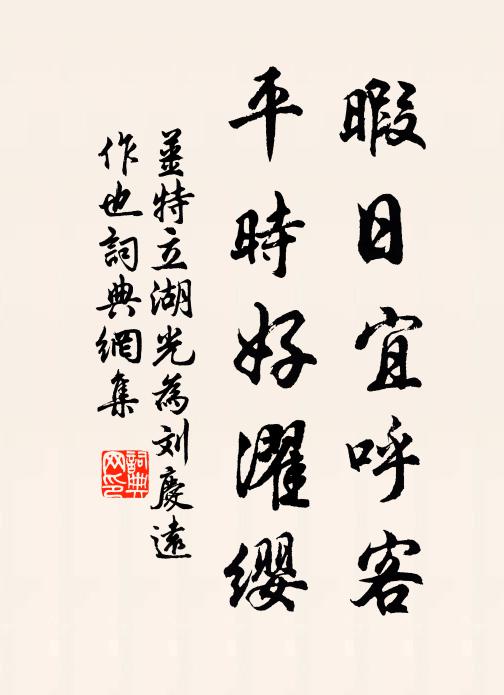 暇日宜呼客
平時好濯纓
姜特立湖光為刘慶遠
作也詞典網集
詞典
网印